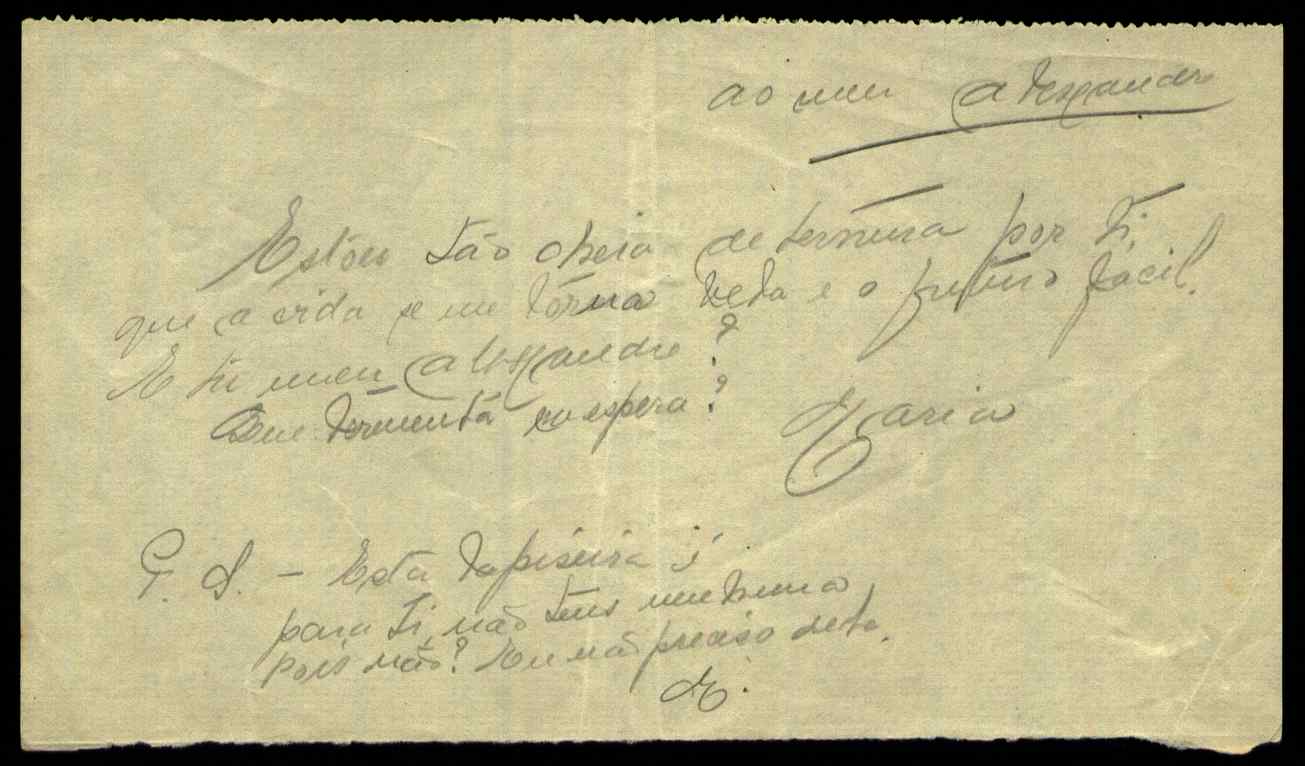 ao meu Alexandre
Estou tão cheia de ternura por ti,
que a vida se me torna bela e o futuro fácil.
E tu meu Alexandre?
Que tormenta espera?
Maria
P. S. – Esta lapiseira é
para ti, não tens nenhuma
pois não? Eu não preciso dela.
M.